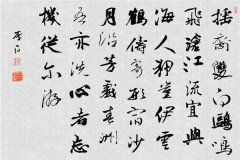 搖裔雙白鷗鳴
飛滄江流宜與
海人狎豈伊雲
鶴儔寄形宿沙
月沿芳戲春洲
吾亦洗心者忘
機從尔游
李白